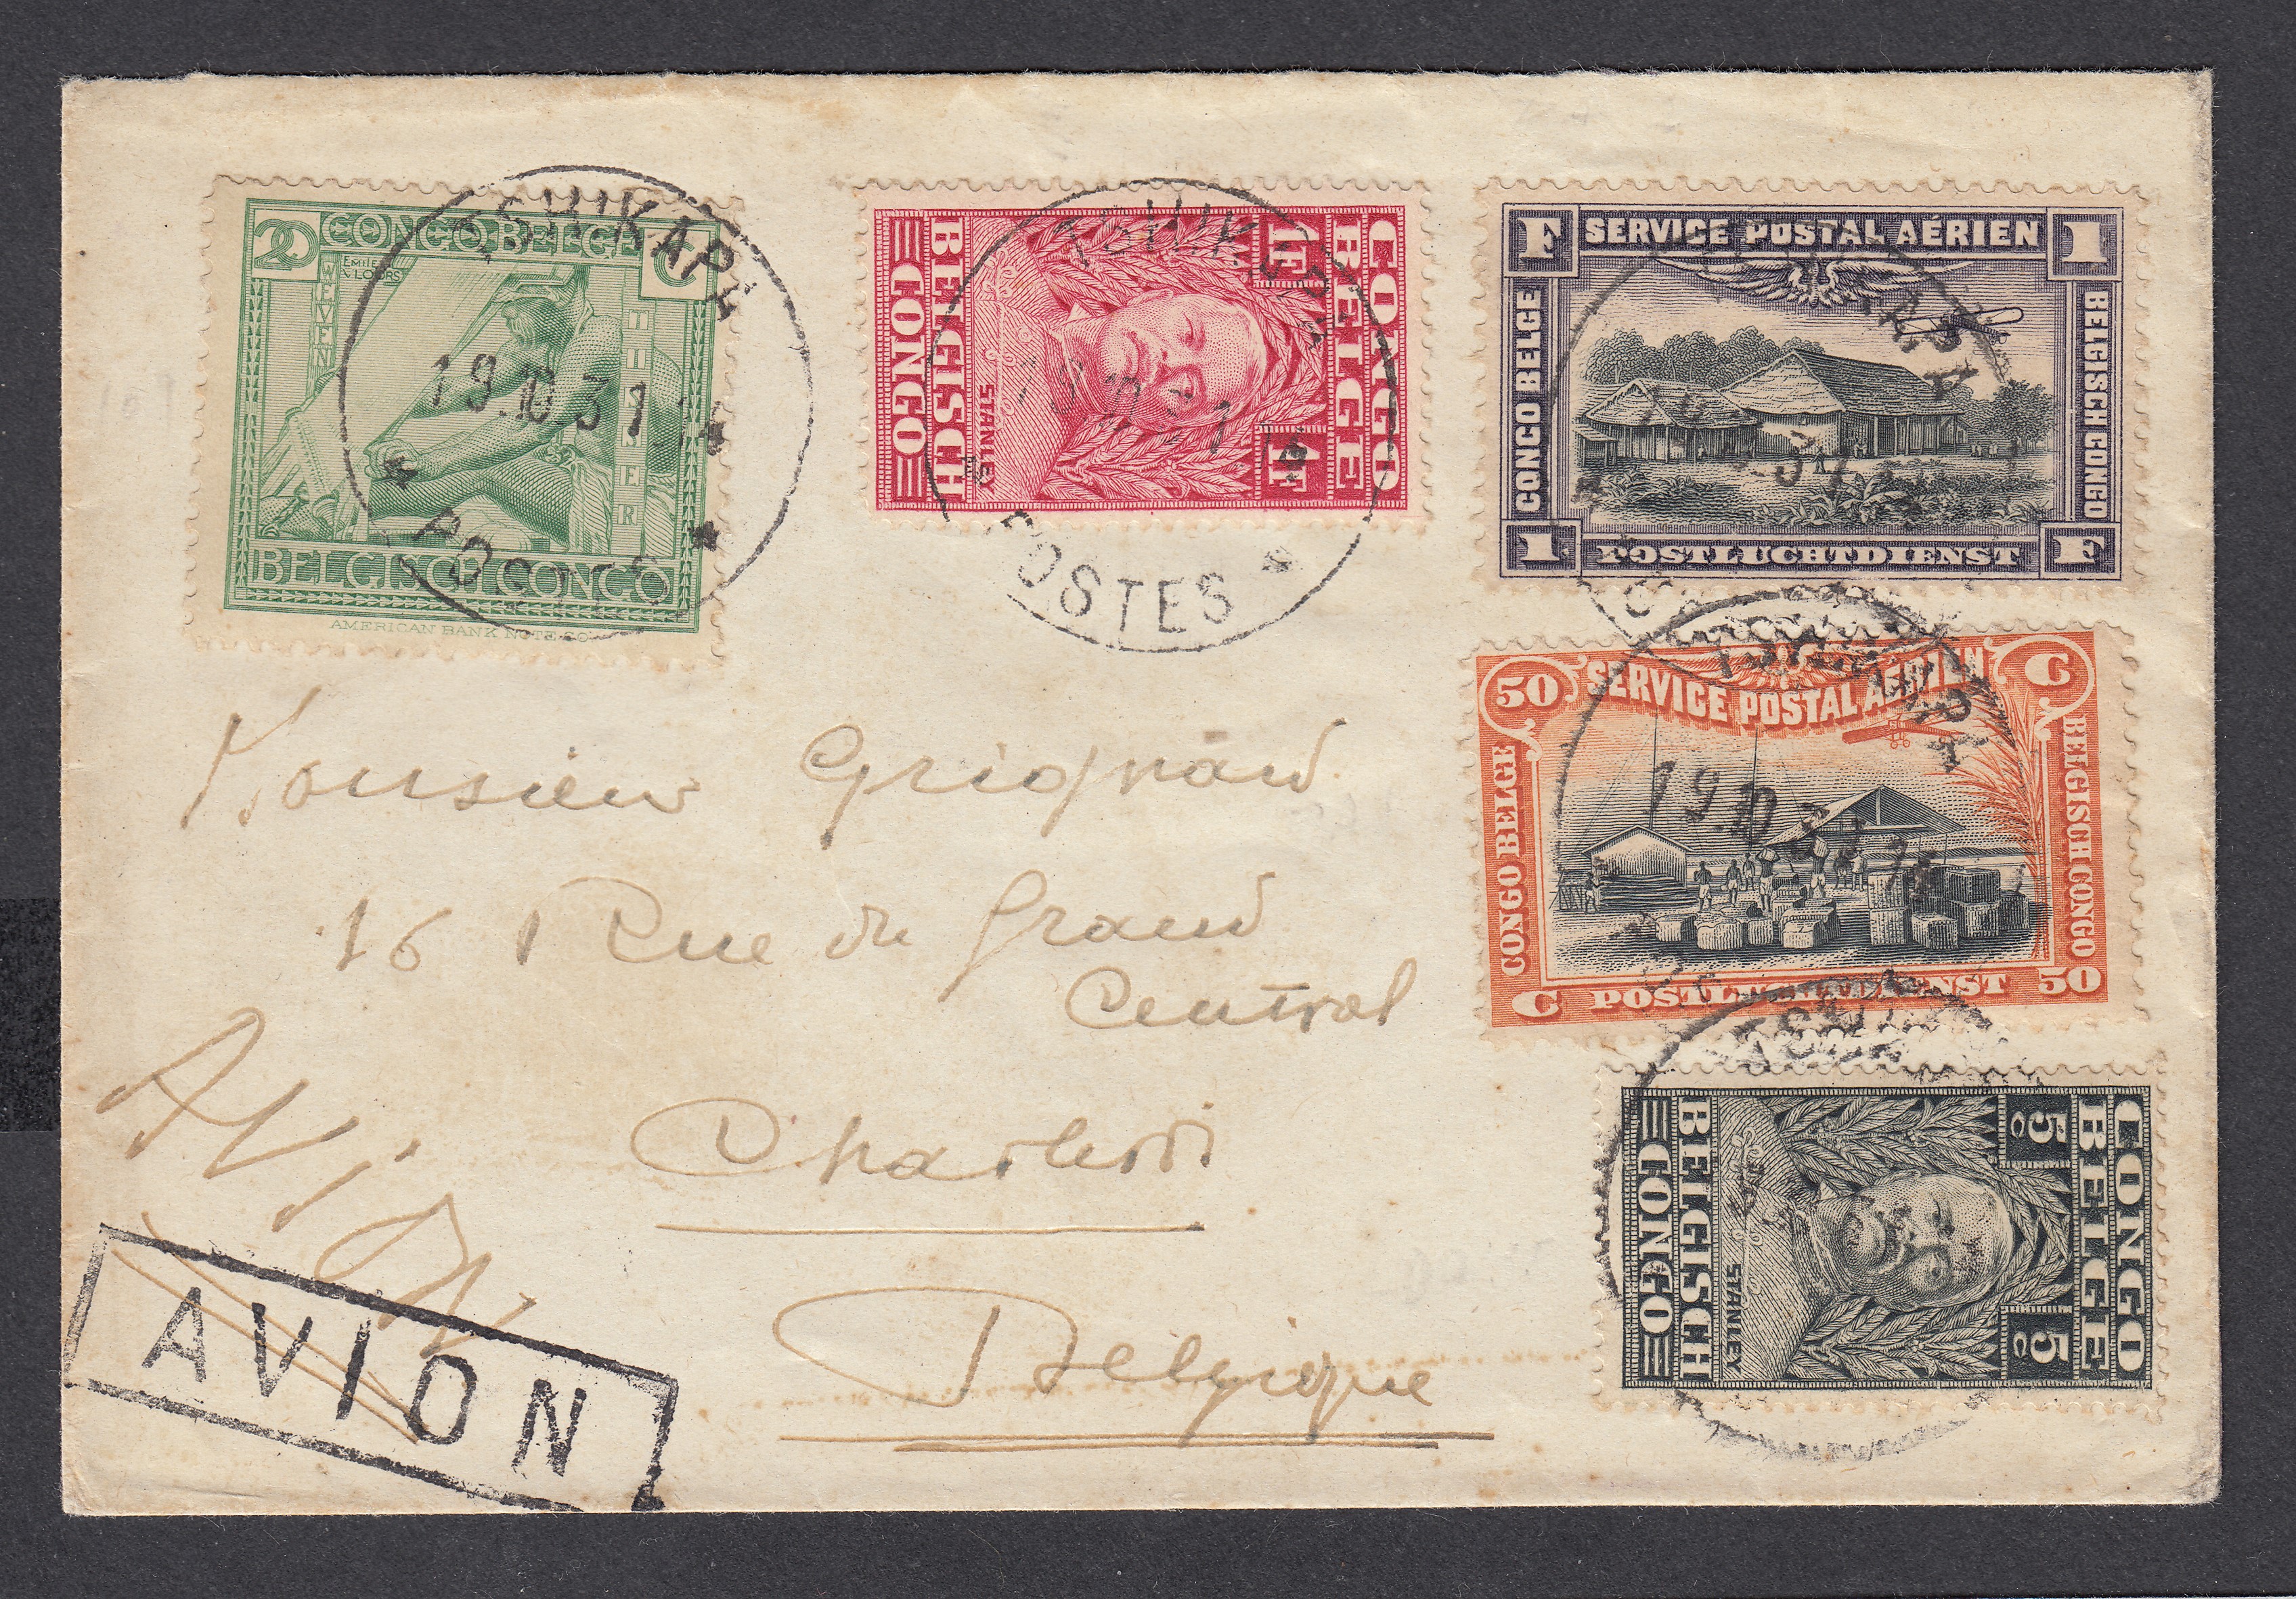 20 CONGO BELGE C
EMILE VLOORS
WEVEN
TISSER
BELGISCH CONGO
AMERICAN BANK NOTE CO
TSHIKAPA
19.10.31 14
* POSTES *
CONGO
BELGE
1F 1F
STANLEY
BELGISCH
CONGO
TSHIKAPA
19.10.31 14
* POSTES *
F SERVICE POSTAL AÉRIEN 1
CONGO BELGE
BELGISCH CONGO
1 POSTLUCHTDIENST F
50 SERVICE POSTAL AÉRIEN C
CONGO BELGE
BELGISCH CONGO
C POSTLUCHTDIENST 50
TSHIKAPA
19.10.31 14
CONGO
BELGE
5c 5c
STANLEY
BELGISCH
CONGO
Monsieur Grignard
16 Rue du Grand
Central
Charleroi
Belgique
AVION